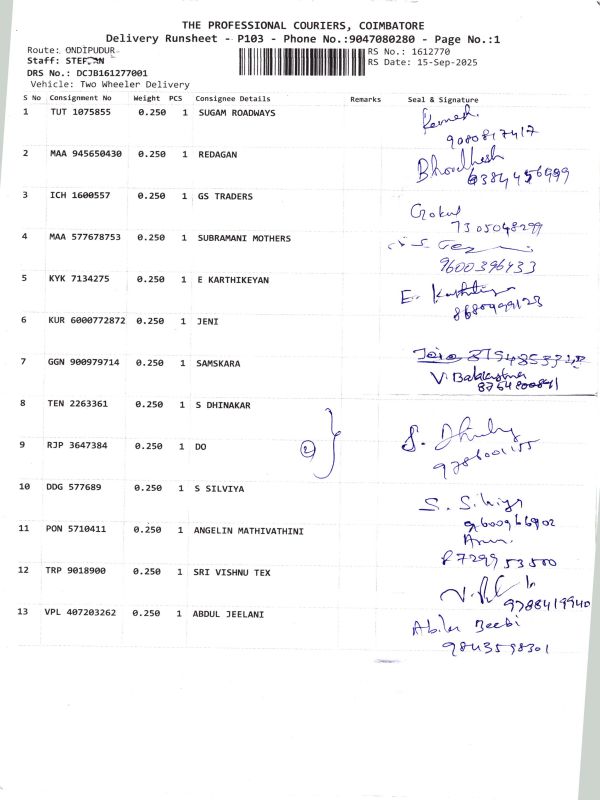 THE PROFESSIONAL COURIERS, COIMBATORE
Delivery Runsheet - P103 - Phone No.:9047080280 - Page No.:1
Route: ONDIPUDUR
RS No.: 1612770
Staff: STEFAN
RS Date: 15-Sep-2025
DRS No.: DCJB161277001
Vehicle: Two Wheeler Delivery
S No Consignment No Weight PCS Consignee Details Remarks Seal & Signature
1 TUT 1075855 0.250 1 SUGAM ROADWAYS
9080817417
2 MAA 945650430 0.250 1 REDAGAN
3 ICH 1600557 0.250 1 GS TRADERS
Gokul
7305048299
4 MAA 577678753 0.250 1 SUBRAMANI MOTHERS
9600396433
5 KYK 7134275 0.250 1 E KARTHIKEYAN
E.
8680999123
6 KUR 6000772872 0.250 1 JENI
7 GGN 900979714 0.250 1 SAMSKARA
8 TEN 2263361 0.250 1 S DHINAKAR
9 RJP 3647384 0.250 1 DO 2
S.
9786001155
10 DDG 577689 0.250 1 S SILVIYA
S.
9600966902
11 PON 5710411 0.250 1 ANGELIN MATHIVATHINI
8729953500
12 TRP 9018900 0.250 1 SRI VISHNU TEX
9788419940
13 VPL 407203262 0.250 1 ABDUL JEELANI
Beebi
9843598301